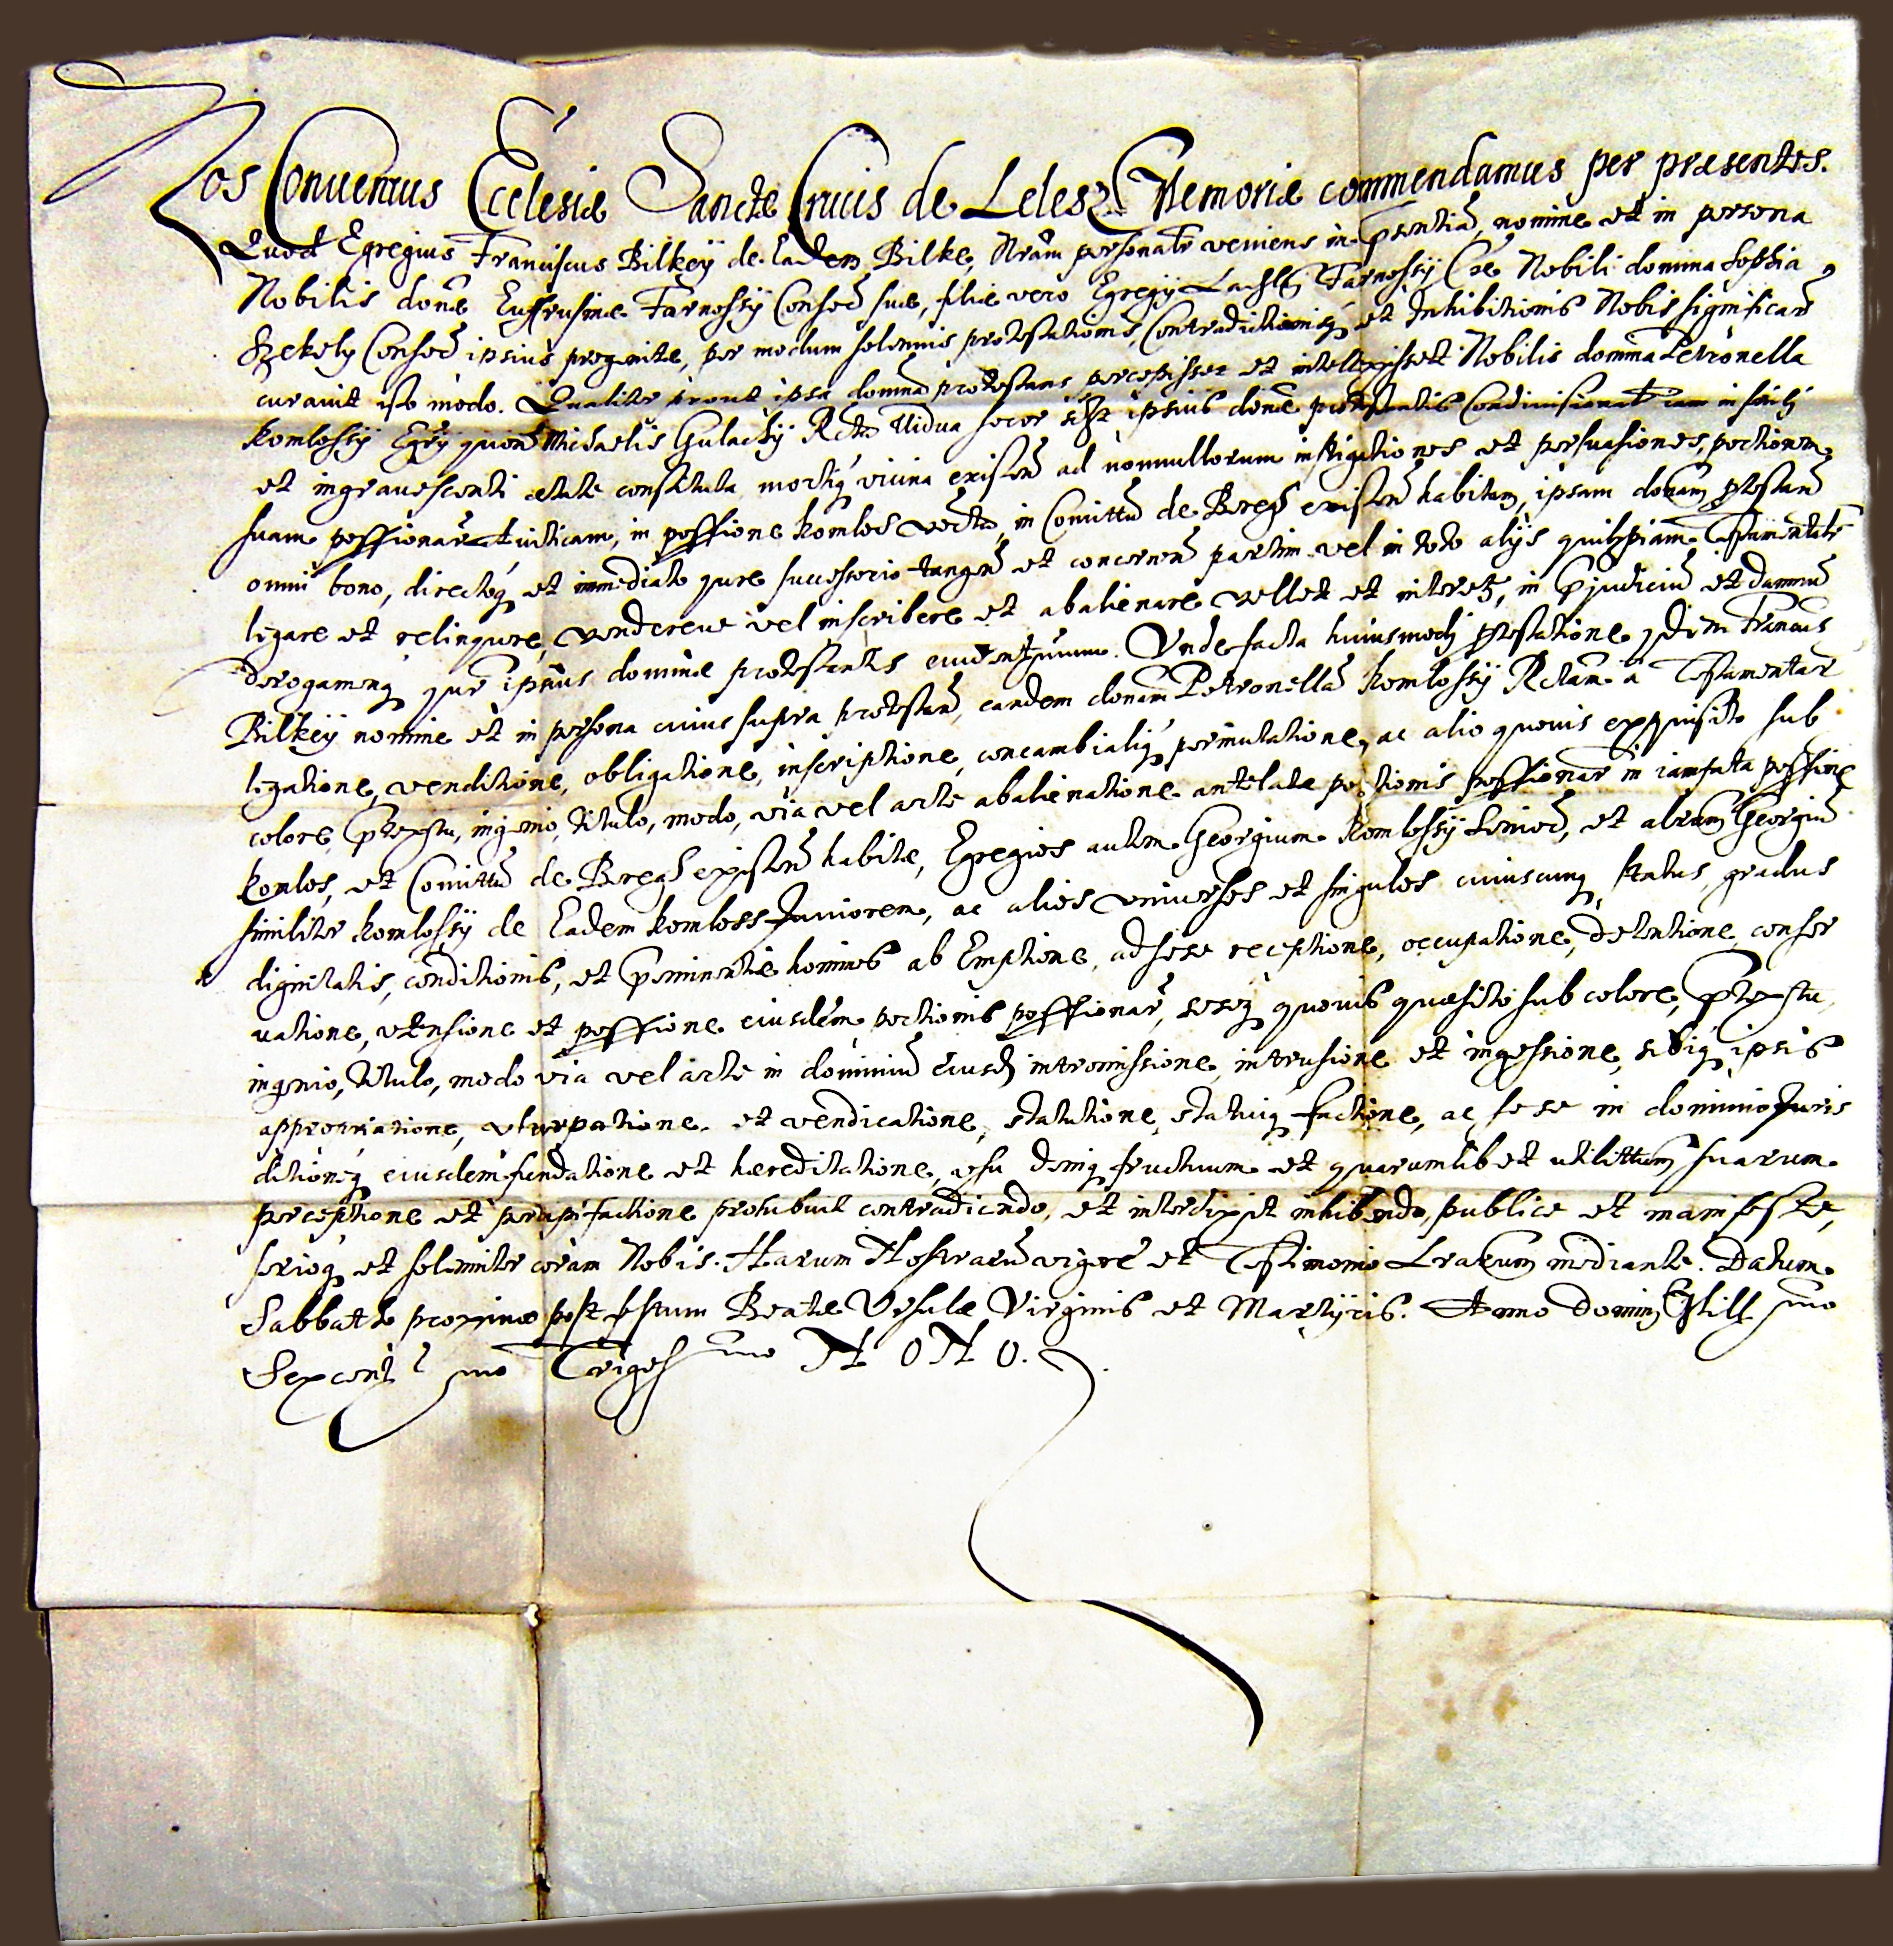 Nos Conuentus Ecclesiæ Sanctæ Crucis de Lelesz Memoriæ commendamus per præsentes.
Quod Egregius Franciscus Bilkeÿ de Eadem Bilke, Nram personalr veniens in pntiã, nomine et in persona
Nobilis donæ Euffrusinæ Farnossÿ Consor suæ, filiæ vero Egregÿ Farnossÿ Nobili domina Sophia
Szekely Consor ipsius progenitæ, per modum solemnis protestationis, Contradictionisq et Inhibitionis Nobis significar
curauit isto modo. Qualiter prout ipsa domina protestans percepisset et intellexisset Nobilis domina Petronella
Komlossÿ Egrÿ quond Michaelis Gulachÿ Rcta Vidua socor ipsius donæ protestantis Condiuisionat iam in
et ingrauescenti ætate constituta mortiq vicina existen ad nonnullorum instigationes et persuasiones, portionem
suam possionar Auiticam, in possione Komlos vocta, in Comittu de Bregh existen habitam, ipsam donam ptestan
omni bono, directoq et immediato jure successorio tangen et concernen partim vel in toto alÿs quibspiam Testamentalr
legare et relinqure, vendereue vel inscribere et abalienare vellet et in pjudiciũ et damnũ
derogamenq jur ipsius dominæ protestantis euidens Unde facta huiusmodj ptestatione, Francus
Bilkeÿ nomine et in persona cuius supra protestan, eandem donam Petronellã Komlossÿ Rctam a Testamentar
legatione, venditione, obligatione, inscriptione, concambialiq permutatione, ac alio quouis exquisito sub
colore, ptextu, ingenio, titulo, modo, via vel arte abalienatione antelatæ portionis possionar in iamfata possione
Komlos, et Comittu de Bregh existen habitæ, Egregios autem Georgium Komlossÿ Senior, et alrum Georgiũ
similiter Komlossÿ de Eadem Komloss Juniorem, ac alios vniuersos et singulos cuiuscunq status, gradus
dignitatis, conditionis, et pæminentiæ homines ab Emptione, ad sese receptione, occupatione, detentione conser
uatione, vtensione et possione eiusdem portionis possionar, seseq quouis quæsito sub colore, ptextu
ingenio, titulo, modo via vel arte in dominiũ eiusd intromissione, intrusione et ingressione, sibiq ipsis
appropriatione, vsurpatione et vendicatione, statutione, statuiq factione, ac sese in dominio Juris
ditioneq eiusdem fundatione et hæreditatione, vsu deniq fructuum et quarumlibet utilittum suarum
perceptione et percipi factione prohibuit contradicendo, et interdixit inhibendo, publice et manifeste,
serioq et solemniter coram Nobis. Harum Nostrarũ vigore et Testimonio Lrarum mediante. Datum
Sabbatho proximo post festum Beatæ Vrsulæ Virginis et Martÿris. Anno Domini Mill smo
Sexcent smo Triges smo NONO.